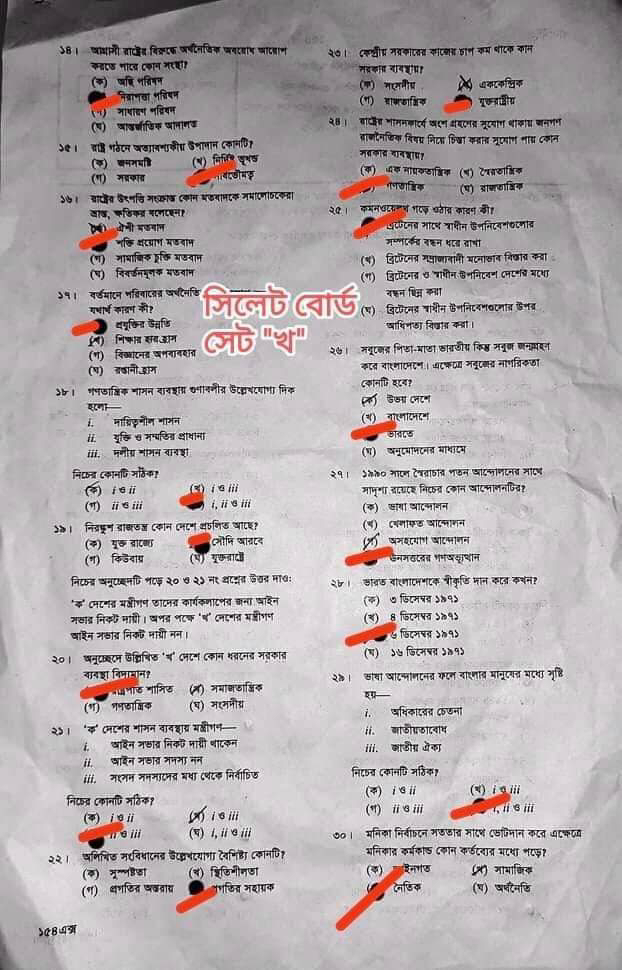 ১৪। আগ্রাসী রাষ্ট্রের বিরুদ্ধে অর্থনৈতিক অবরোধ আরোপ
করতে পারে কোন সংস্থা?
(ক) অছি পরিষদ
নিরাপত্তা পরিষদ
সাধারণ পরিষদ
(ঘ) আন্তর্জাতিক আদালত
১৫। রাষ্ট্র গঠনে অত্যাবশ্যকীয় উপাদান কোনটি?
(ক) জনসমষ্টি (খ) নির্দিষ্ট ভূখন্ড
(গ) সরকার সার্বভৌমত্ব
১৬। রাষ্ট্রের উৎপত্তি সংক্রান্ত কোন মতবাদকে সমালোচকেরা
ভ্রান্ত, ক্ষতিকর বলেছেন?
ঐশী মতবাদ
শক্তি প্রয়োগ মতবাদ
(গ) সামাজিক চুক্তি মতবাদ
(ঘ) বিবর্তনমূলক মতবাদ
১৭। বর্তমানে পরিবারের অর্থনৈতি
যথার্থ কারণ কী?
প্রযুক্তির উন্নতি
(খ) শিক্ষার হার হ্রাস
(গ) বিজ্ঞানের অপব্যবহার
(ঘ) রপ্তানী হ্রাস
সিলেট বোর্ড
সেট "খ"
১৮। গণতান্ত্রিক শাসন ব্যবস্থায় গুণাবলীর উল্লেখযোগ্য দিক
হলো—
i. দায়িত্বশীল শাসন
ii. যুক্তি ও সম্মতির প্রাধান্য
iii. দলীয় শাসন ব্যবস্থা
নিচের কোনটি সঠিক?
(ক) i ও ii (খ) i ও iii
(গ) ii ও iii i, ii ও iii
১৯। নিরঙ্কুশ রাজতন্ত্র কোন দেশে প্রচলিত আছে?
(ক) যুক্ত রাজ্যে সৌদি আরবে
(গ) কিউবায় (ঘ) যুক্তরাষ্ট্রে
নিচের অনুচ্ছেদটি পড়ে ২০ ও ২১ নং প্রশ্নের উত্তর দাও:
'ক' দেশের মন্ত্রীগণ তাদের কার্যকলাপের জন্য আইন
সভার নিকট দায়ী। অপর পক্ষে 'খ' দেশের মন্ত্রীগণ
আইন সভার নিকট দায়ী নন।
২০। অনুচ্ছেদে উল্লিখিত 'খ' দেশে কোন ধরনের সরকার
ব্যবস্থা বিদ্যমান?
রাষ্ট্রপতি শাসিত (খ) সমাজতান্ত্রিক
(গ) গণতান্ত্রিক (ঘ) সংসদীয়
২১। 'ক' দেশের শাসন ব্যবস্থায় মন্ত্রীগণ—
i. আইন সভার নিকট দায়ী থাকেন
ii. আইন সভার সদস্য নন
iii. সংসদ সদস্যদের মধ্য থেকে নির্বাচিত
নিচের কোনটি সঠিক?
(ক) i ও ii (খ) i ও iii
ii ও iii (ঘ) i, ii ও iii
২২। অলিখিত সংবিধানের উল্লেখযোগ্য বৈশিষ্ট্য কোনটি?
(ক) সুস্পষ্টতা (খ) স্থিতিশীলতা
(গ) প্রগতির অন্তরায় প্রগতির সহায়ক
১৫৪এক্স
২৩। কেন্দ্রীয় সরকারের কাজের চাপ কম থাকে কোন
সরকার ব্যবস্থায়?
(ক) সংসদীয় (খ) এককেন্দ্রিক
(গ) রাজতান্ত্রিক যুক্তরাষ্ট্রীয়
২৪। রাষ্ট্রের শাসনকার্যে অংশ গ্রহণের সুযোগ থাকায় জনগণ
রাজনৈতিক বিষয় নিয়ে চিন্তা করার সুযোগ পায় কোন
সরকার ব্যবস্থায়?
(ক) এক নায়কতান্ত্রিক (খ) স্বৈরতান্ত্রিক
গণতান্ত্রিক (ঘ) রাজতান্ত্রিক
২৫। কমনওয়েলথ গড়ে ওঠার কারণ কী?
ব্রিটেনের সাথে স্বাধীন উপনিবেশগুলোর
সম্পর্কের বন্ধন ধরে রাখা
(খ) ব্রিটেনের সম্রাজ্যবাদী মনোভাব বিস্তার করা
(গ) ব্রিটেনের ও স্বাধীন উপনিবেশ দেশের মধ্যে
বন্ধন ছিন্ন করা
(ঘ) ব্রিটেনের স্বাধীন উপনিবেশগুলোর উপর
আধিপত্য বিস্তার করা।
২৬। সবুজের পিতা-মাতা ভারতীয় কিন্তু সবুজ জন্মগ্রহণ
করে বাংলাদেশে। এক্ষেত্রে সবুজের নাগরিকতা
কোনটি হবে?
(ক) উভয় দেশে
(খ) বাংলাদেশে
ভারতে
(ঘ) অনুমোদনের মাধ্যমে
২৭। ১৯৯০ সালে স্বৈরাচার পতন আন্দোলনের সাথে
সাদৃশ্য রয়েছে নিচের কোন আন্দোলনটির?
(ক) ভাষা আন্দোলন
(খ) খেলাফত আন্দোলন
(গ) অসহযোগ আন্দোলন
উনসত্তরের গণঅভ্যুত্থান
২৮। ভারত বাংলাদেশকে স্বীকৃতি দান করে কখন?
(ক) ৩ ডিসেম্বর ১৯৭১
(খ) ৪ ডিসেম্বর ১৯৭১
৬ ডিসেম্বর ১৯৭১
(ঘ) ১৬ ডিসেম্বর ১৯৭১
২৯। ভাষা আন্দোলনের ফলে বাংলার মানুষের মধ্যে সৃষ্টি
হয়—
i. অধিকারের চেতনা
ii. জাতীয়তাবোধ
iii. জাতীয় ঐক্য
নিচের কোনটি সঠিক?
(ক) i ও ii (খ) i ও iii
(গ) ii ও iii i, ii ও iii
৩০। মনিকা নির্বাচনে সততার সাথে ভোটদান করে এক্ষেত্রে
মনিকার কর্মকান্ড কোন কর্তব্যের মধ্যে পড়ে?
(ক) আইনগত (খ) সামাজিক
নৈতিক (ঘ) অর্থনৈতি